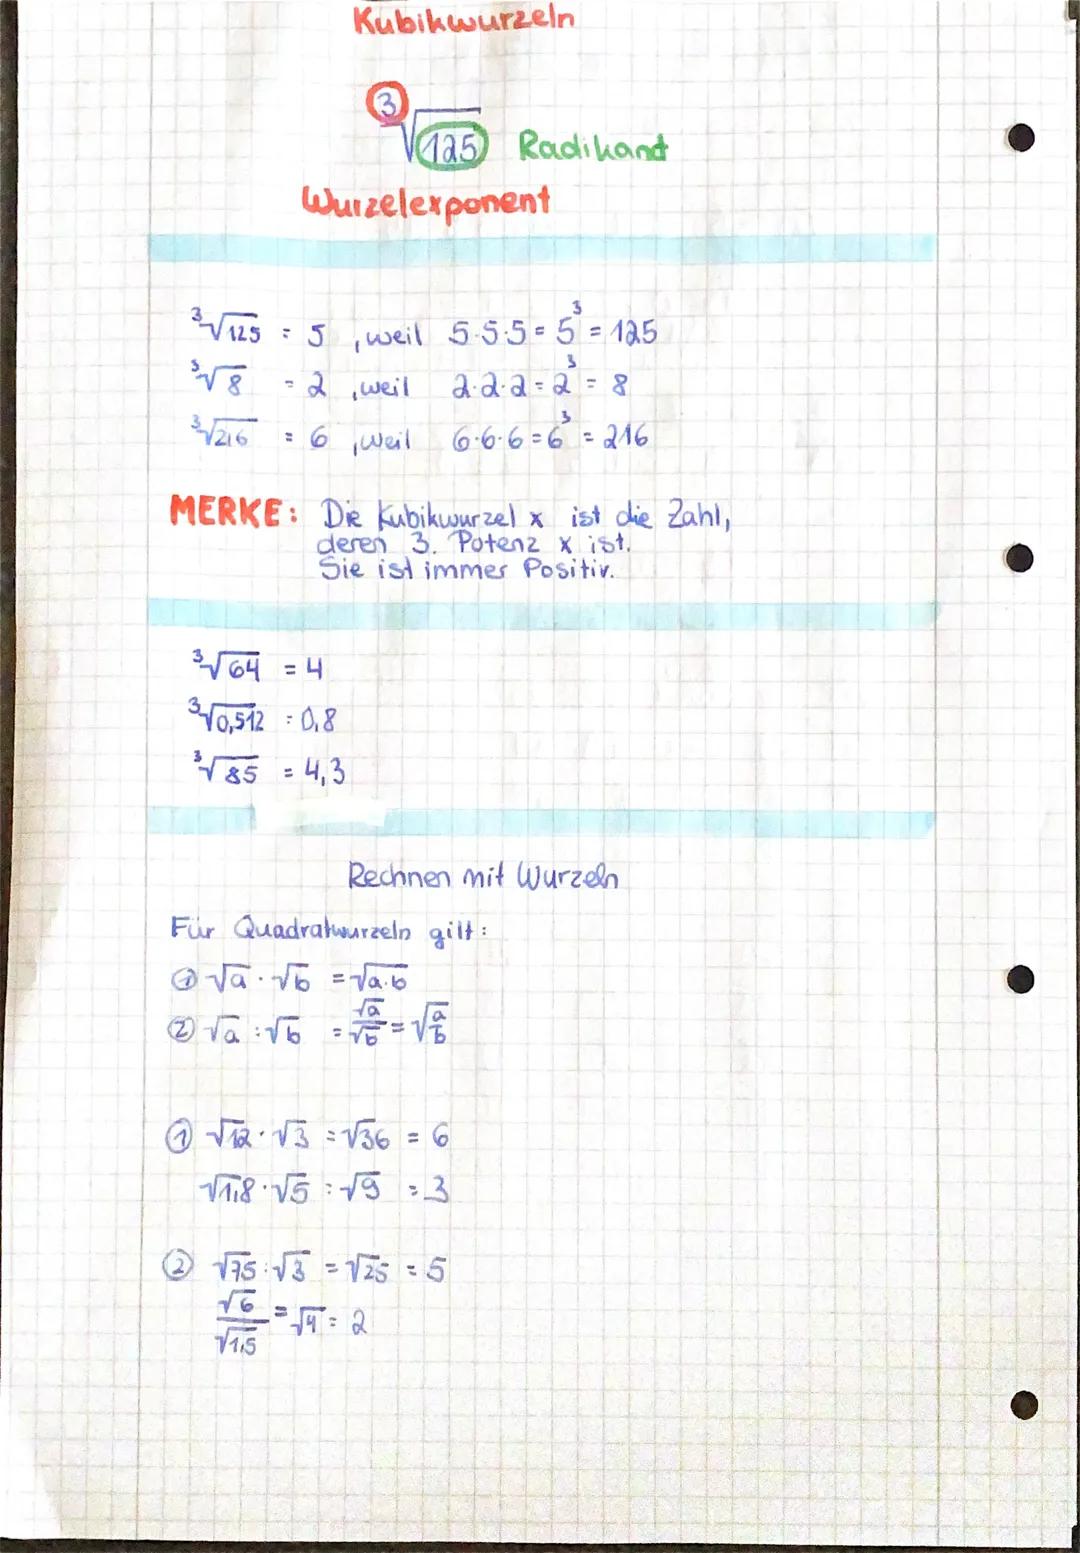 Kubikwurzeln
³√125 Radikand
Wurzelexponent
³√125 = 5 , weil 5·5·5 = 5³ = 125
³√8 = 2 , weil 2·2·2 = 2³ = 8
³√216 = 6 , weil 6·6·6 = 6³ = 216
MERKE: Die Kubikwurzel x ist die Zahl,
deren 3. Potenz x ist.
Sie ist immer Positiv.
³√64 = 4
³√0,512 = 0,8
³√85 = 4,3
Rechnen mit Wurzeln
Für Quadratwurzeln gilt:
① √a · √b = √a·b
② √a : √b = √a/√b = √a/b
① √12 · √3 = √36 = 6
√1,8 · √5 = √9 = 3
② √75 : √3 = √25 = 5
√6/√1,5 = √4 = 2